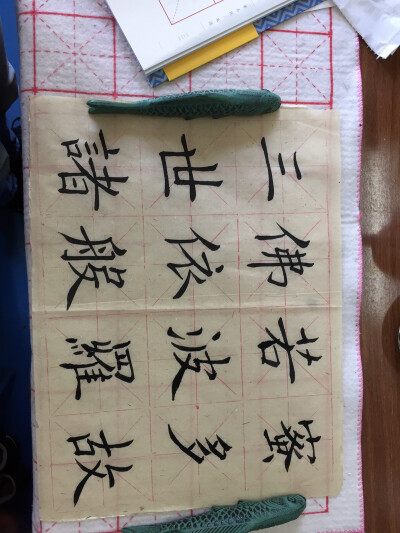 三世諸
佛依般
若波羅
蜜多故